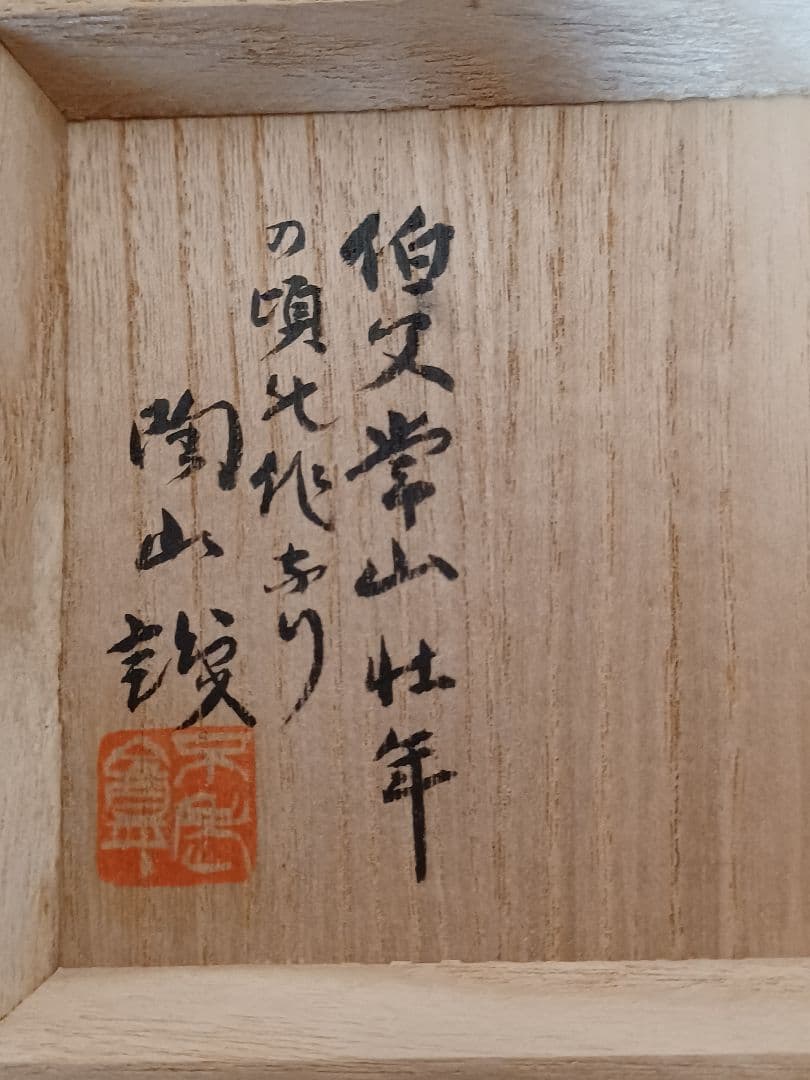 伯父常山壮年
の頃の作なり
陶山 識